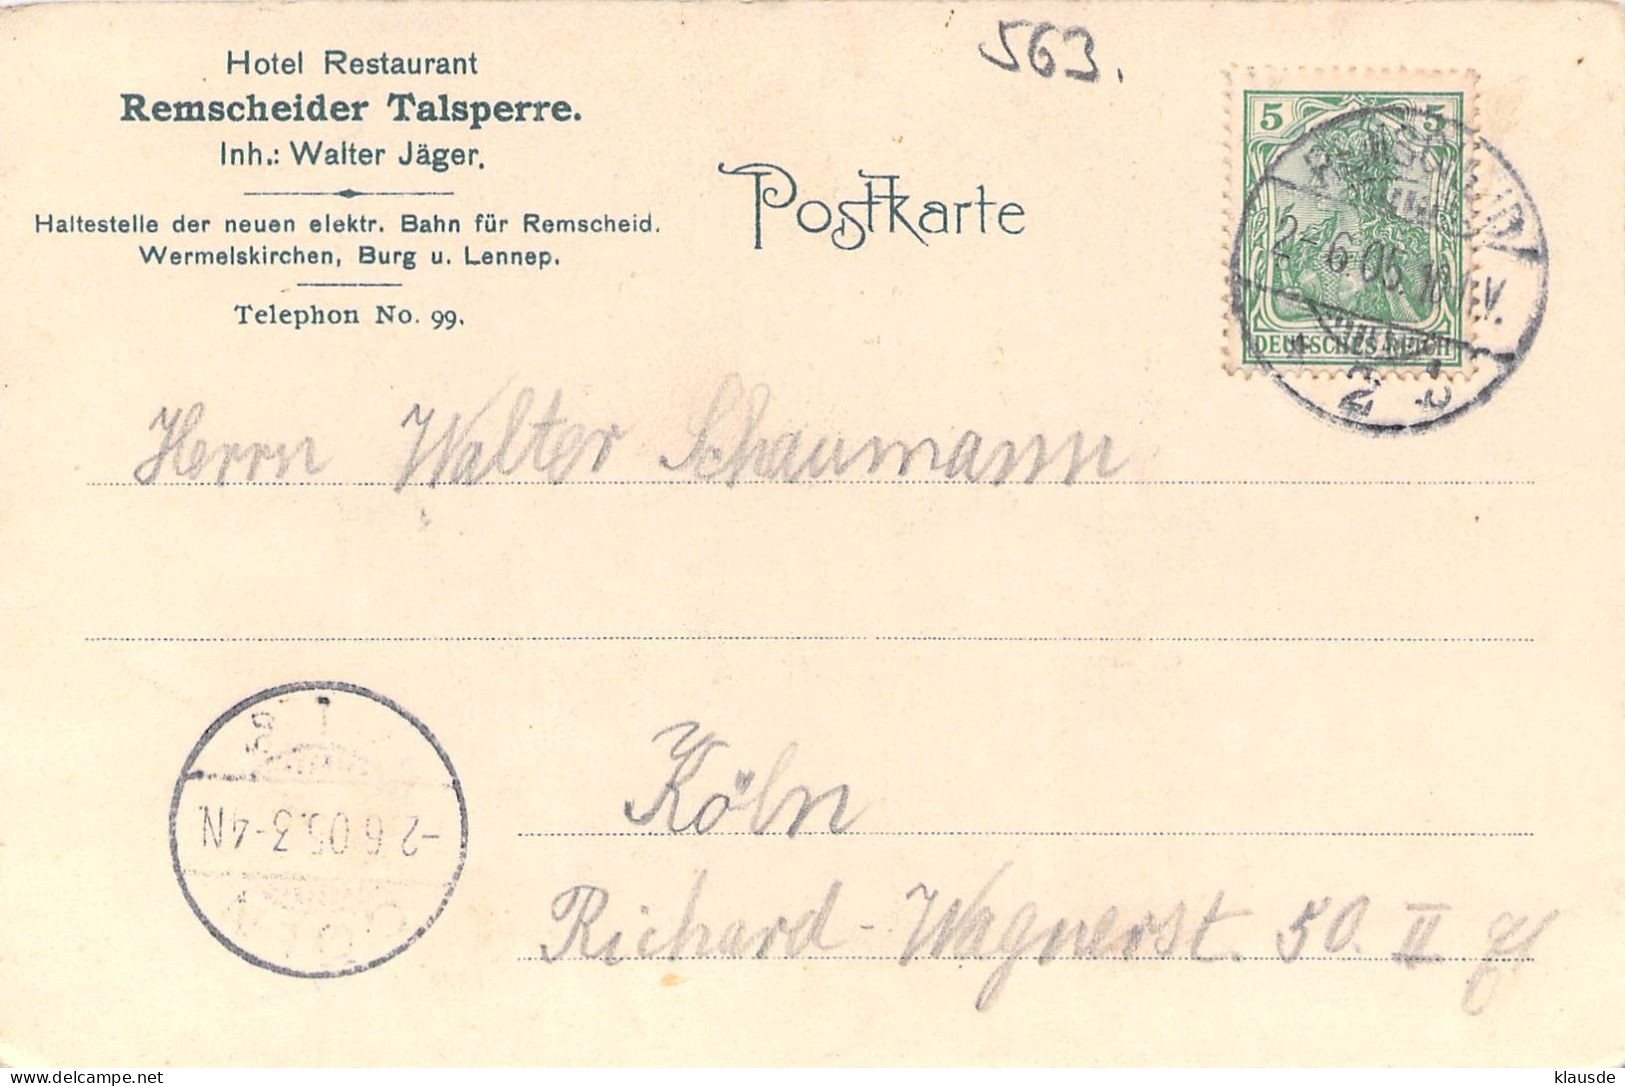 563.
Hotel Restaurant
Remscheider Talsperre.
Inh.: Walter Jäger.
Haltestelle der neuen elektr. Bahn für Remscheid.
Wermelskirchen, Burg u. Lennep.
Telephon No. 99.
Postkarte
5 5
DEUTSCHES REICH
REMSCHEID
2-6.05.
Herrn Walter Schaumann
-2.6.05.3-4N
CÖLN
Köln
Richard-Wagnerst. 50. II
klausde